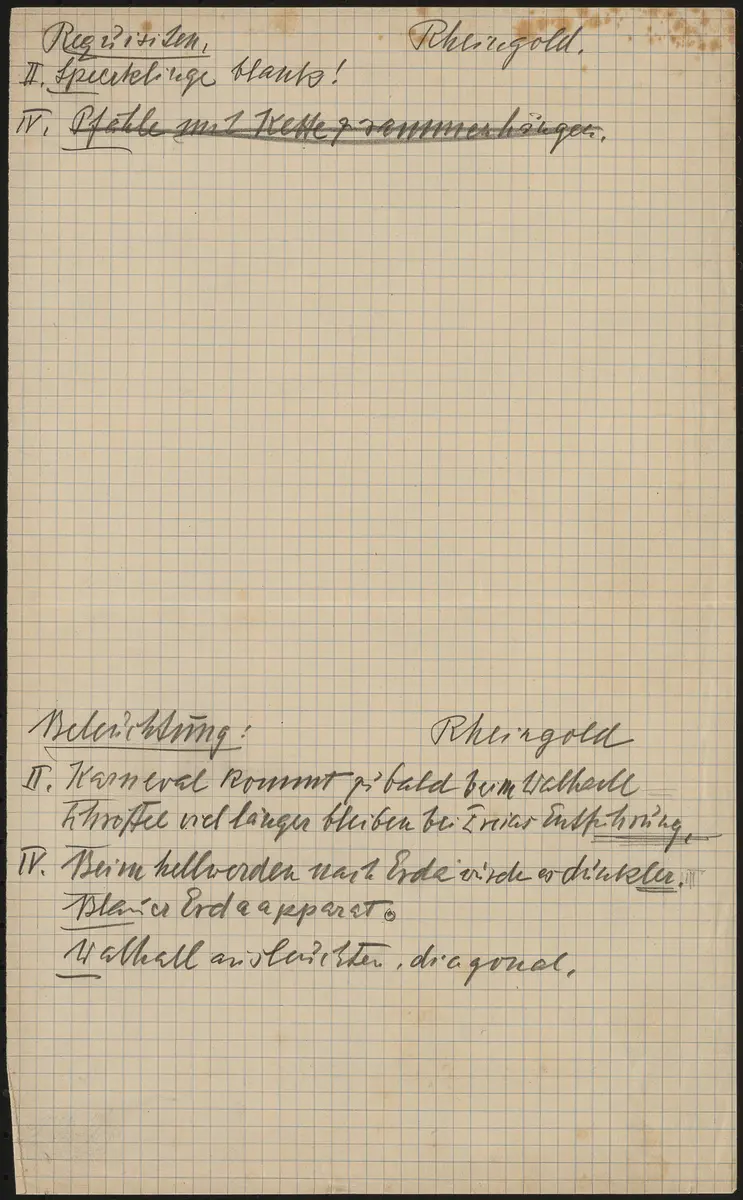 Requisiten. Rheingold.
II. Speerklinge blank!
IV. Pfähle mit Kette zusammenhängen.
Beleuchtung: Rheingold
II. Karneval kommt zu bald beim Walhall
viel länger bleiben bei Freias Entführung.
IV. Beim hellwerden nach Erda wurde es dunkler.
Blauer Erdaapparat.
Walhall ausleuchten. diagonal.